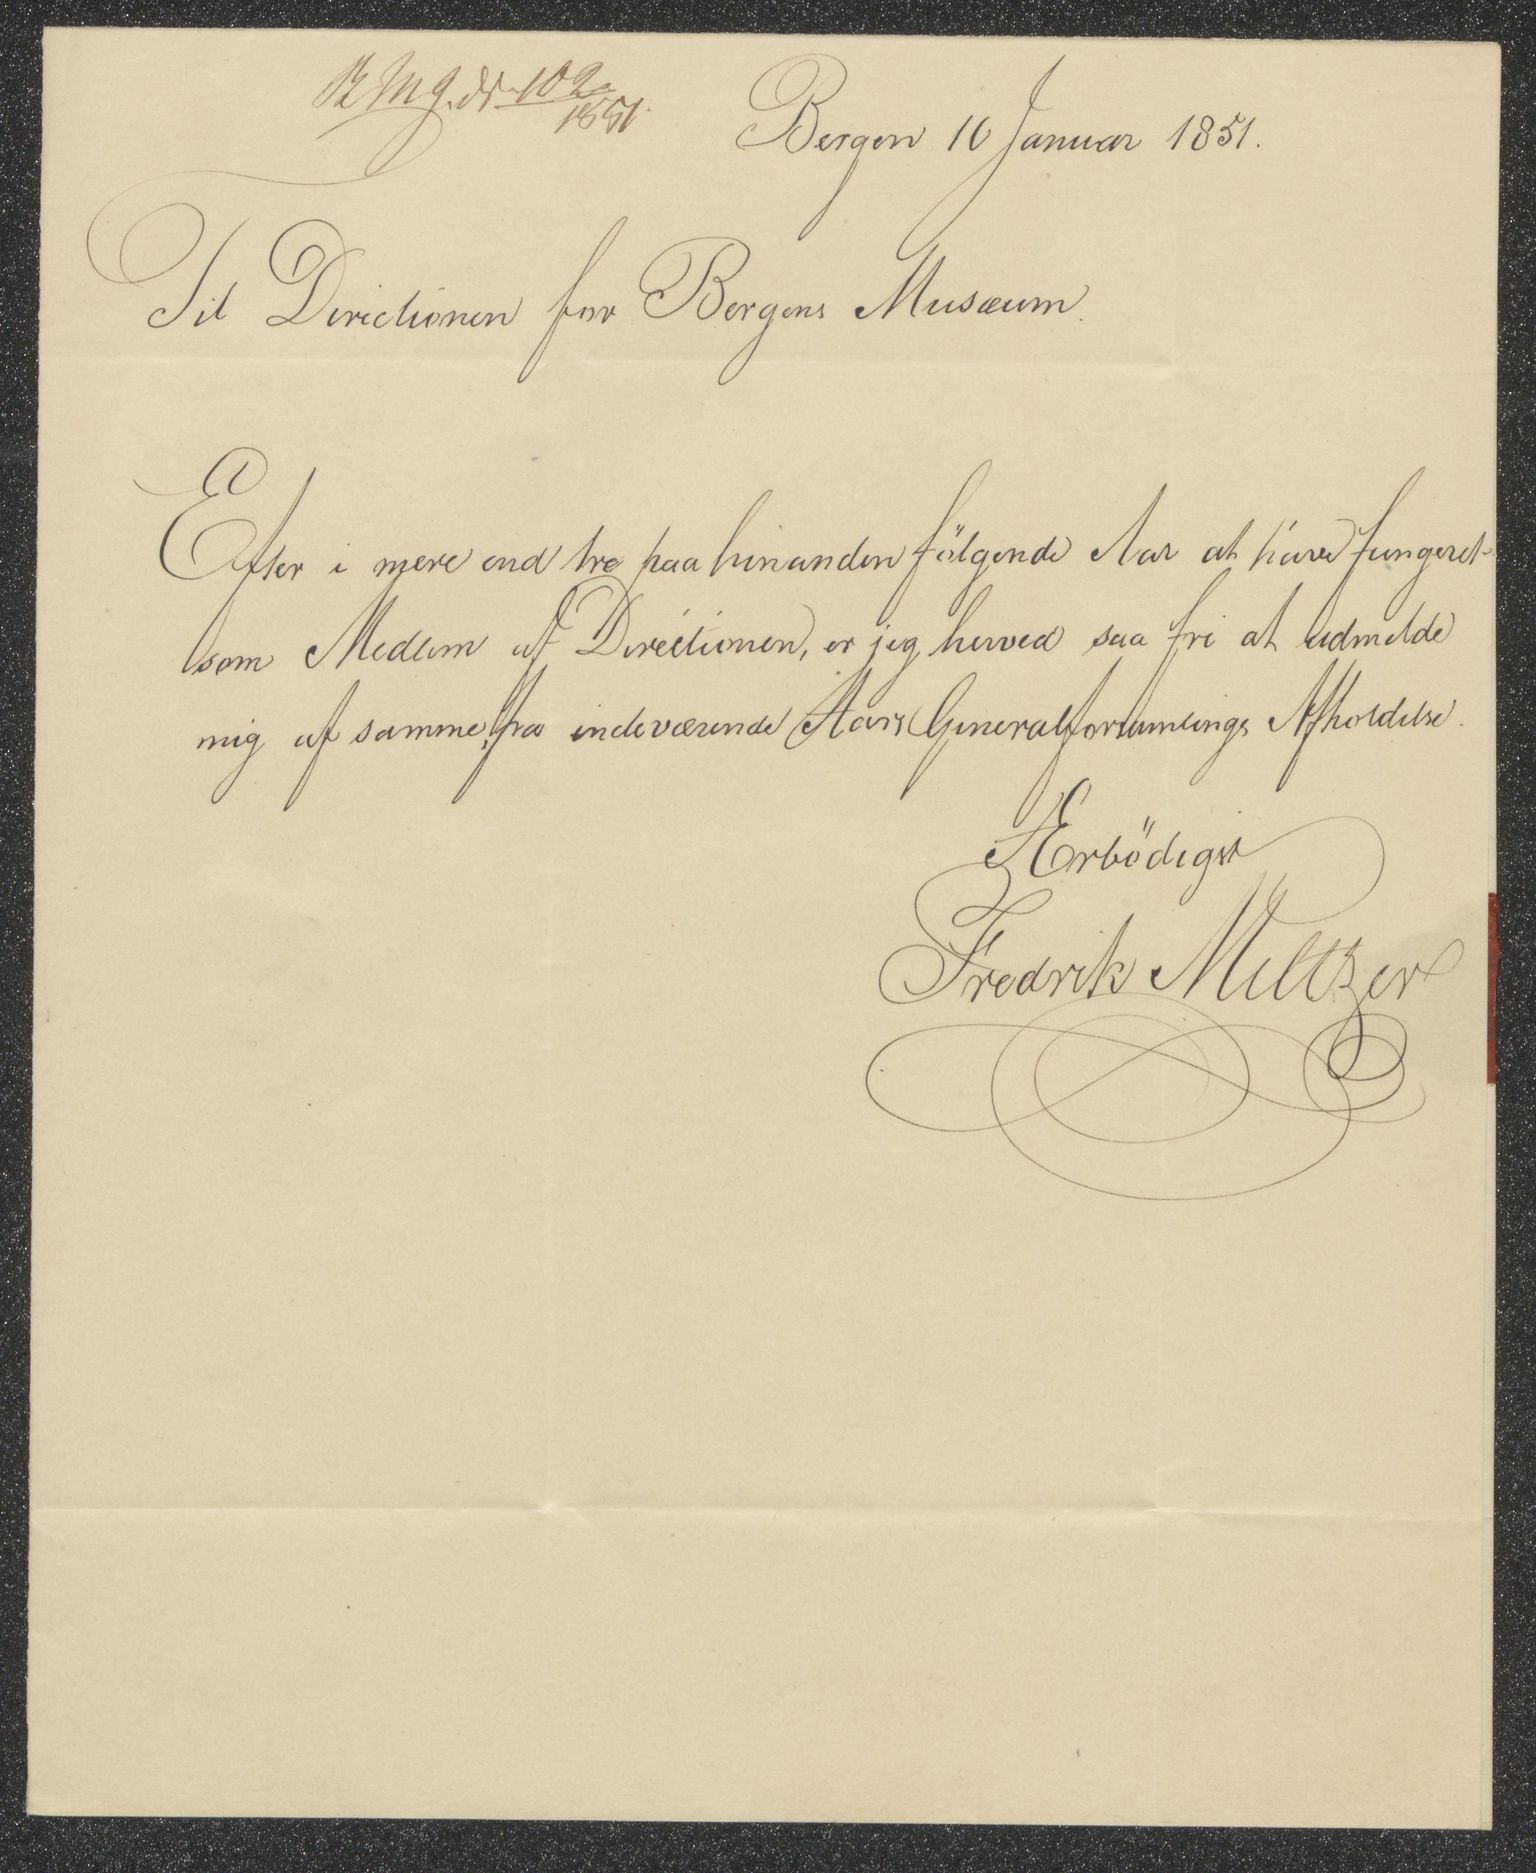 B. M. J. No 102
1851.
Bergen 16 Januar 1851.
Til Directionen for Bergens Musæum.
Efter i mere end tre paa hinanden fölgende Aar at have fungeret
som Medlem af Directionen, er jeg herved saa fri at udmelde
mig af samme, fra indeværende Aars Generalforsamlings Afholdelse.
Ærbödigst
Fredrik Meltzer